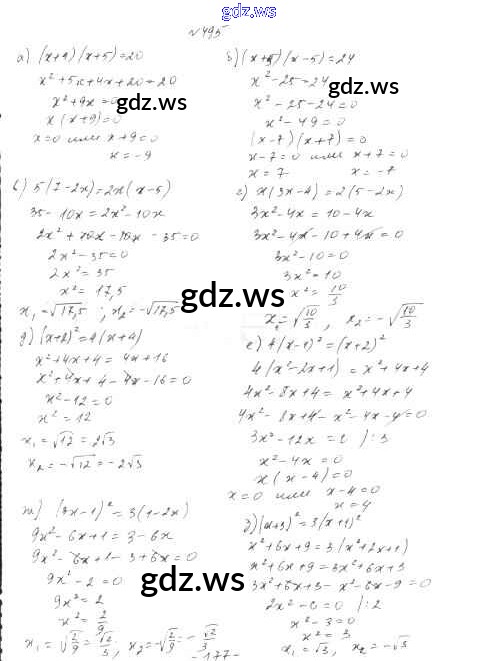 gdz.ws
№ 495
а) (x+4)(x+5)=20
x²+5x+4x+20=20
x²+9x=0
x(x+9)=0
x=0 или x+9=0
x=-9
б) (x+5)(x-5)=24
x²-25=24
x²-25-24=0
x²-49=0
(x-7)(x+7)=0
x-7=0 или x+7=0
x=7 x=-7
gdz.ws
gdz.ws
в) 5(7-2x)=2x(x-5)
35-10x=2x²-10x
2x²+10x-10x-35=0
2x²-35=0
2x²=35
x²=17,5
x₁=√17,5; x₂=-√17,5
г) x(3x-4)=2(5-2x)
3x²-4x=10-4x
3x²-4x-10+4x=0
3x²-10=0
3x²=10
x²=10/3
x₁=√10/3, x₂=-√10/3
gdz.ws
д) (x+2)²=4(x+4)
x²+4x+4=4x+16
x²+4x+4-4x-16=0
x²-12=0
x²=12
x₁=√12=2√3
x₂=-√12=-2√3
е) 4(x-1)²=(x+2)²
4(x²-2x+1)=x²+4x+4
4x²-8x+4=x²+4x+4
4x²-8x+4-x²-4x-4=0
3x²-12x=0 /:3
x²-4x=0
x(x-4)=0
x=0 или x-4=0
x=4
ж) (3x-1)²=3(1-2x)
9x²-6x+1=3-6x
9x²-6x+1-3+6x=0
9x²-2=0
9x²=2
x²=2/9
x₁=√2/9=√2/3, x₂=-√2/9=-√2/3
з) (x+3)²=3(x+1)²
x²+6x+9=3(x²+2x+1)
x²+6x+9=3x²+6x+3
3x²+6x+3-x²-6x-9=0
2x²-6=0 /:2
x²-3=0
x²=3
x₁=√3, x₂=-√3
gdz.ws
gdz.ws
-177-